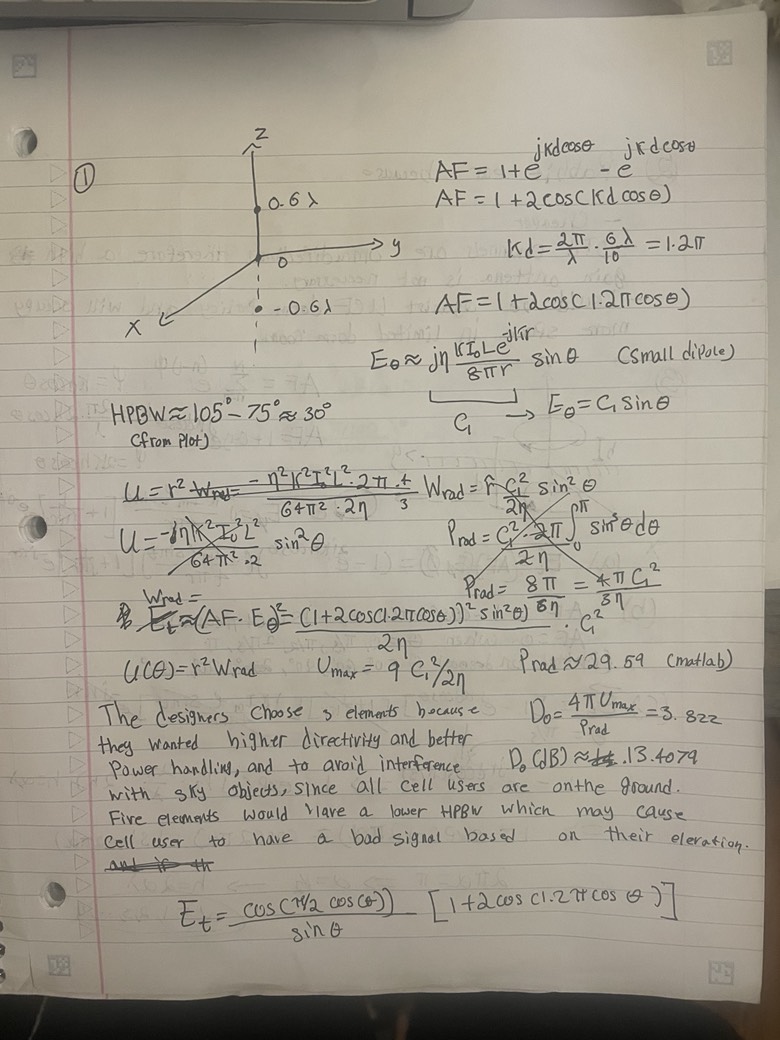 ①
z
0.6λ
y
0
-0.6λ
x
AF = 1 + e^{jkdcosθ} - e^{jkdcosθ}
AF = 1 + 2cos(kdcosθ)
kd = 2π/λ · 6λ/10 = 1.2π
AF = 1 + 2cos(1.2πcosθ)
E_θ ≈ jη kI₀Le^{-jkr}/8πr sinθ (small dipole)
C₁ → E_θ = C₁ sinθ
HPBW ≈ 105° - 75° ≈ 30°
(from Plot)
U = r² W_rad = -η²k²I₀²L²·2π·4/64π²·2η 3
W_rad = r̂ C₁²/2η sin²θ
U = -jηk²I₀²L²/64π²·2 sin²θ
P_rad = C₁²·2π/2η ∫₀^π sin³θdθ
P_rad = 8π/6η = 4πC₁²/3η
W_rad =
E_t ≈ (AF·E_θ)² = (1+2cos(1.2πcosθ))² sin²θ)/2η · C₁²
U(θ) = r² W_rad U_max = 9 C₁²/2η P_rad ≈ 29.59 (matlab)
The designers choose 3 elements because
they wanted higher directivity and better
Power handling, and to avoid interference
with sky objects, since all cell users are on the ground.
Five elements would have a lower HPBW which may cause
Cell user to have a bad signal based on their eleration.
and if th
D₀ = 4πU_max/P_rad = 3.822
D₀(dB) ≈ 13.4079
E_t = cos(π/2 cos(θ))/sinθ [1+2cos(1.2πcosθ)]